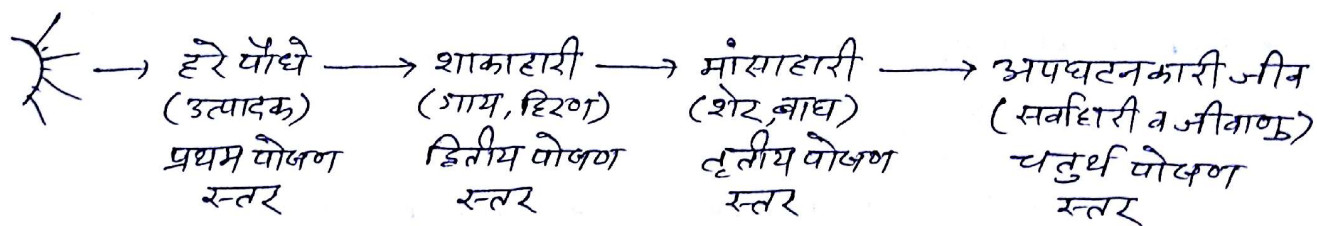 → हरे पौधे → शाकाहारी → मांसाहारी → अपघटनकारी जीव
(उत्पादक) (गाय, हिरण) (शेर, बाघ) (सर्वाहारी व जीवाणु)
प्रथम पोषण द्वितीय पोषण तृतीय पोषण चतुर्थ पोषण
स्तर स्तर स्तर स्तर